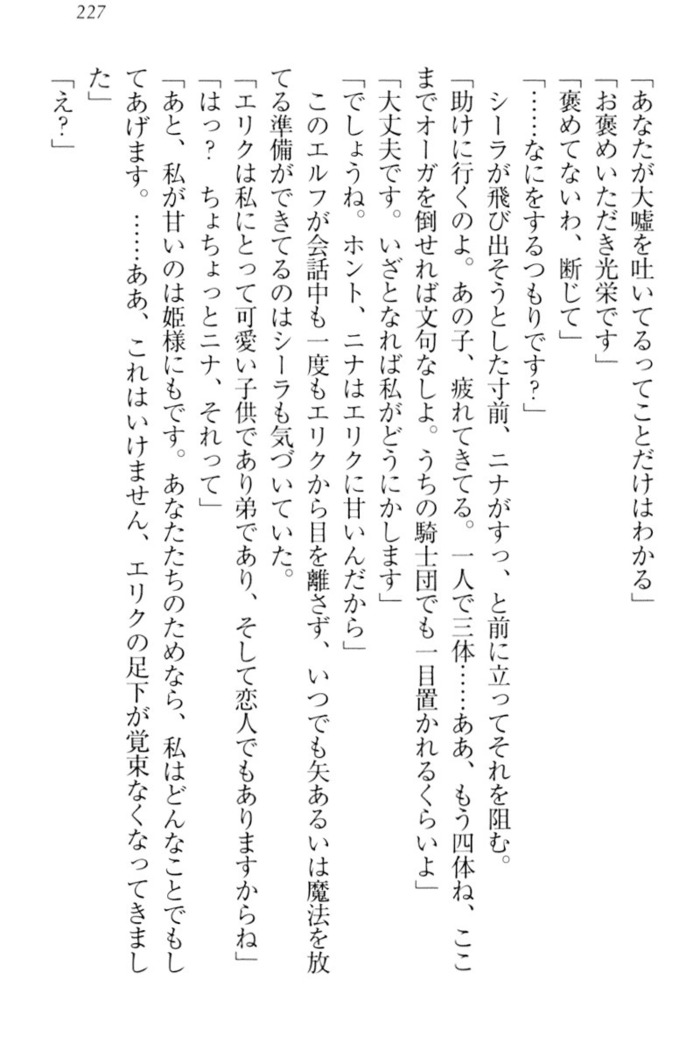 227
「あなたが大嘘を吐いてるってことだけはわかる」
「お褒めいただき光栄です」
「褒めてないわ、断じて」
「……なにをするつもりです？」
　シーラが飛び出そうとした寸前、ニナがすっ、と前に立ってそれを阻む。
「助けに行くのよ。あの子、疲れてきてる。一人で三体……ああ、もう四体ね、ここ
までオーガを倒せれば文句なしよ。うちの騎士団でも一目置かれるくらいよ」
「大丈夫です。いざとなれば私がどうにかします」
「でしょうね。ホント、ニナはエリクに甘いんだから」
　このエルフが会話中も一度もエリクから目を離さず、いつでも矢あるいは魔法を放
てる準備ができてるのはシーラも気づいていた。
「エリクは私にとって可愛い子供であり弟であり、そして恋人でもありますからね」
「はっ？　ちょちょっとニナ、それって」
「あと、私が甘いのは姫様にもです。あなたたちのためなら、私はどんなことでもし
てあげます。……ああ、これはいけません、エリクの足下が覚束なくなってきまし
た」
「え？」